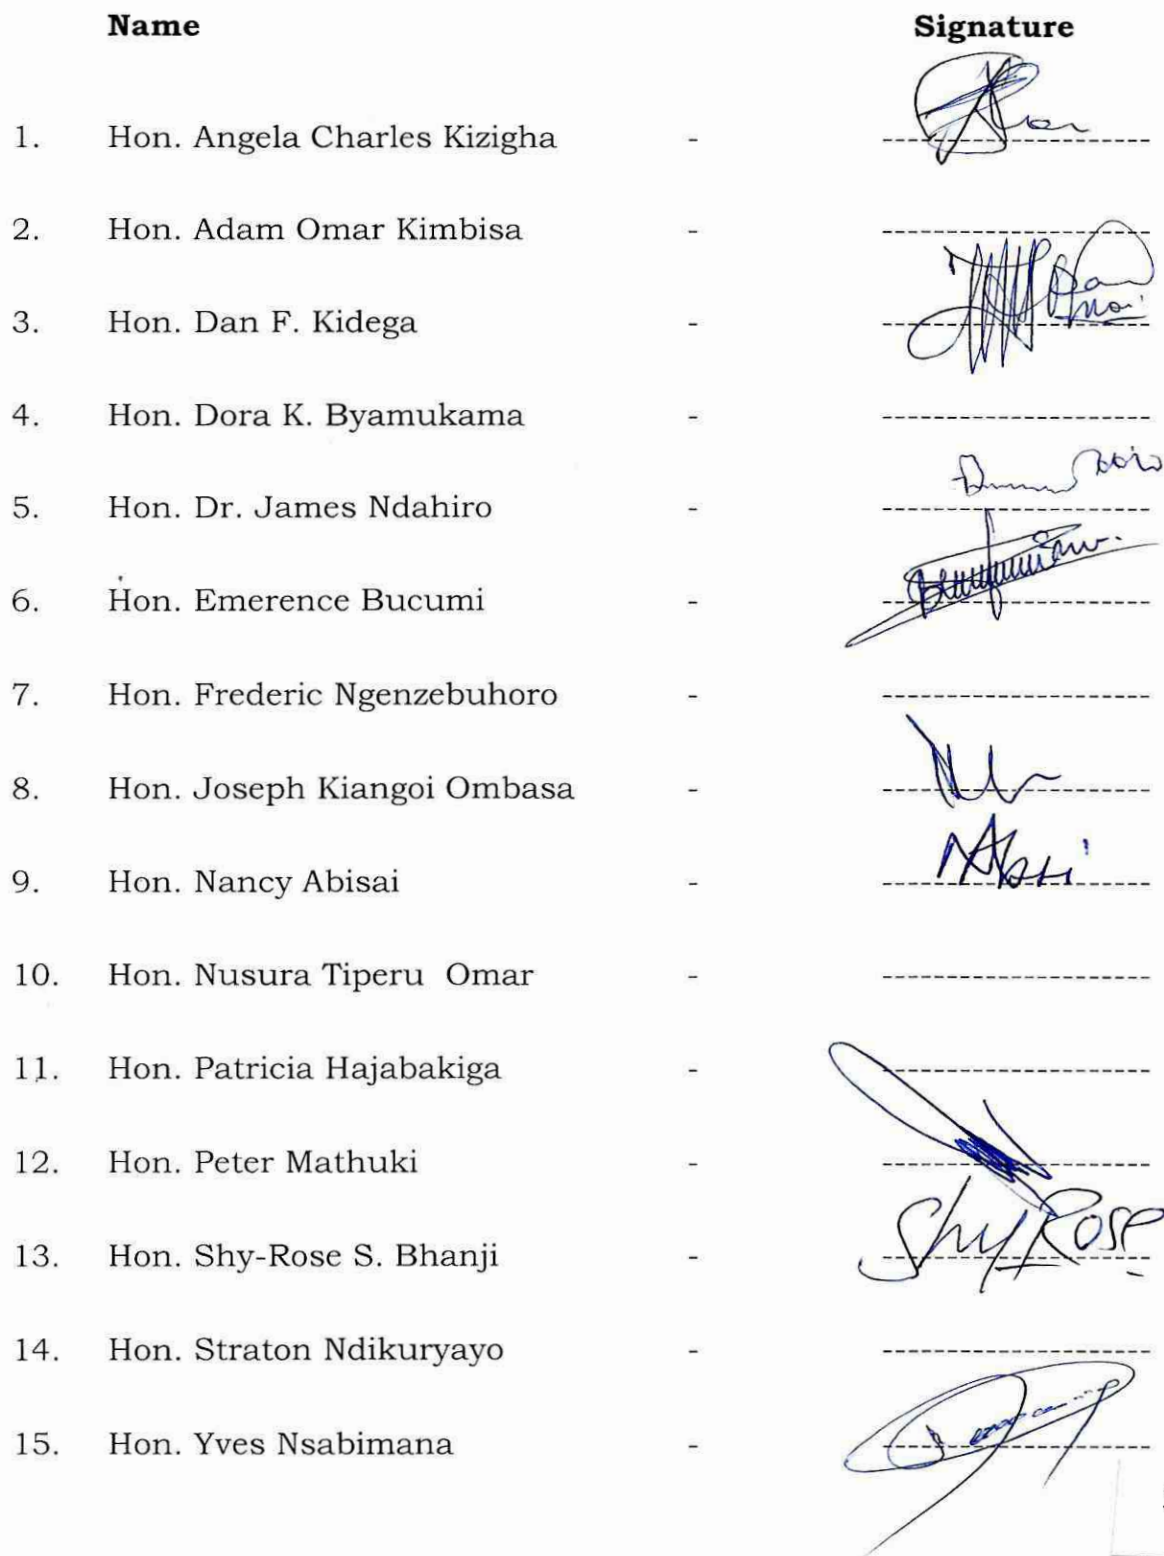 Name Signature
1. Hon. Angela Charles Kizigha -
2. Hon. Adam Omar Kimbisa -
3. Hon. Dan F. Kidega -
4. Hon. Dora K. Byamukama -
5. Hon. Dr. James Ndahiro -
6. Hon. Emerence Bucumi -
7. Hon. Frederic Ngenzebuhoro -
8. Hon. Joseph Kiangoi Ombasa -
9. Hon. Nancy Abisai -
10. Hon. Nusura Tiperu Omar -
11. Hon. Patricia Hajabakiga -
12. Hon. Peter Mathuki -
13. Hon. Shy-Rose S. Bhanji - Shy Rose
14. Hon. Straton Ndikuryayo -
15. Hon. Yves Nsabimana -